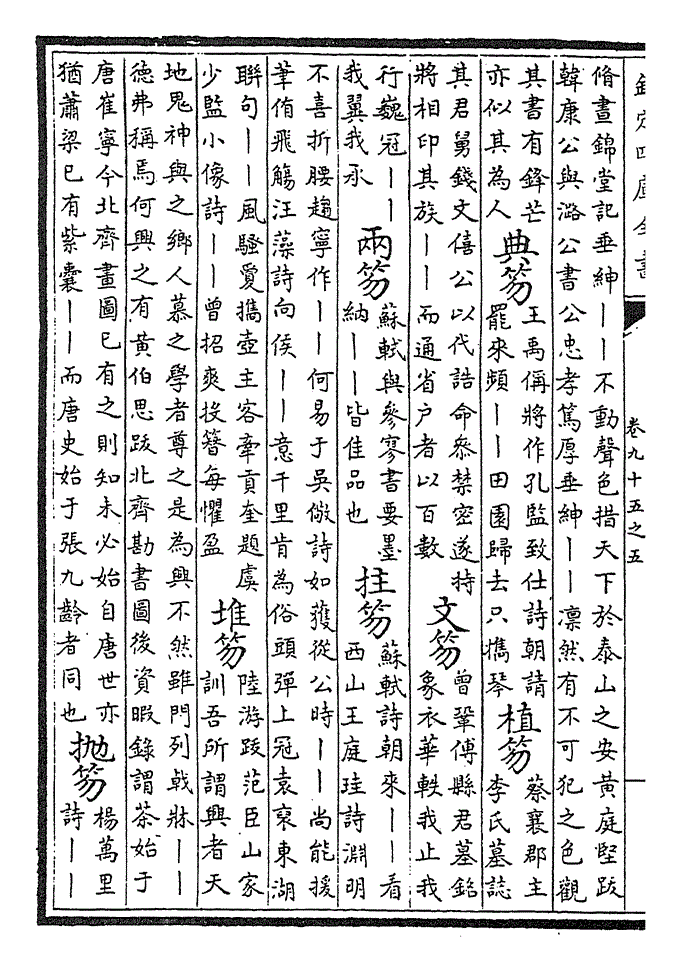 欽定四庫全書
卷九十五之五
脩晝錦堂記垂紳丨丨不動聲色措天下於泰山之安黃庭堅跋
韓康公與潞公書公忠孝篤厚垂紳丨丨凛然有不可犯之色觀
其書有鋒芒
亦似其為人
典笏
王禹偁將作孔監致仕詩朝請
罷來頻丨丨田園歸去只攜琴
植笏
蔡襄郡主
李氏墓誌
其君舅錢文僖公以代誥命叅禁密遂特
將相印其族丨丨而通省户者以百數
文笏
曾鞏傅縣君墓銘
象衣華軼我止我
行巍冠丨丨
我翼我承
兩笏
蘇軾與參寥書要墨
納丨丨皆佳品也
拄笏
蘇軾詩朝來丨丨看
西山王庭珪詩淵明
不喜折腰趨寧作丨丨何易于吳儆詩如獲從公時丨丨尚能援
筆侑飛觴汪藻詩向侯丨丨意千里肯為俗頭彈上冠袁褧東湖
聯句丨丨風騷愛攜壺主客牽貢奎題虞
少監小像詩丨丨曾招爽投簪每懼盈
堆笏
陸游跋范臣山家
訓吾所謂興者天
地鬼神與之鄉人慕之學者尊之是為興不然雖門列戟牀丨丨
德弗稱焉何興之有黃伯思跋北齊勘書圖後資暇錄謂茶始于
唐崔寧今北齊畫圖已有之則知未必始自唐世亦
猶蕭梁已有紫囊丨丨而唐史始于張九齡者同也
拋笏
楊萬里
詩丨丨